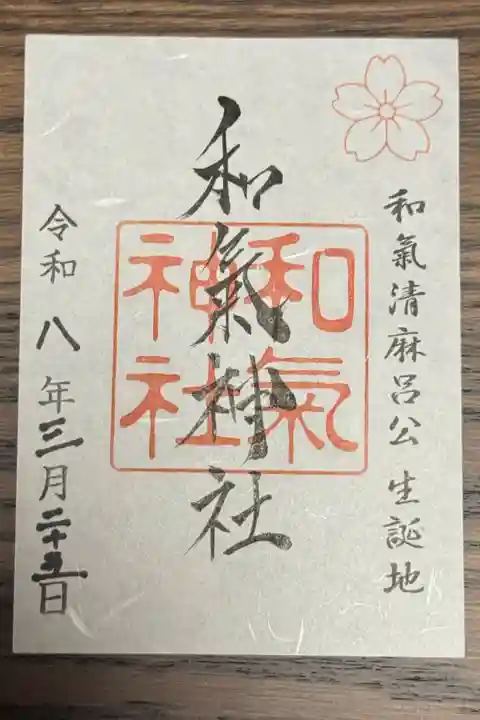 和氣清麻呂公 生誕地
和氣神社
和氣神社
令和八年三月二十五日